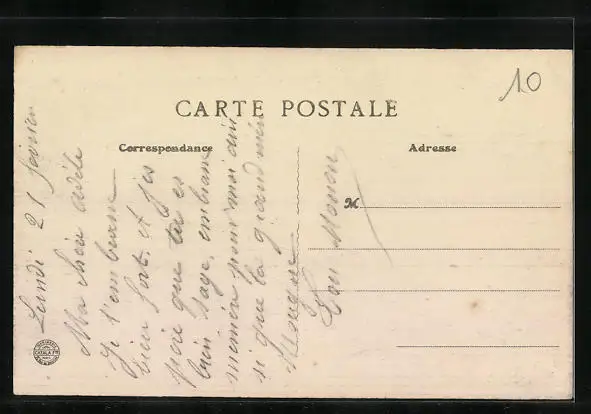 10
CARTE POSTALE
Correspondance
Adresse
M
Lundi 21 février
Ma chère Adèle
Je t'embrasse
bien fort, et
que tu es
bien sage, embrasse
pour moi
si que la grand
Ton
CATALA